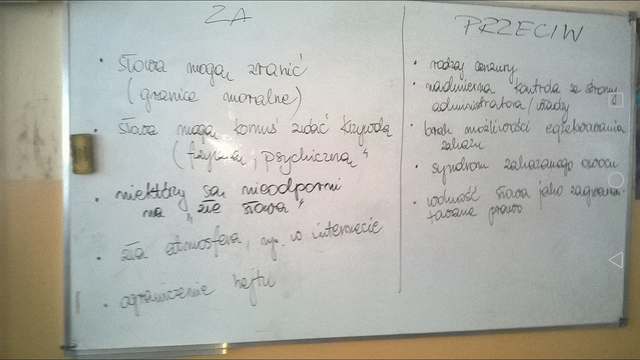 ZA
• słowa mogą zranić
(granice moralne)
• słowa mogą komuś zadać krzywdę
(fizyczną, psychiczną)
• niektórzy są nieodporni
na „złe słowa"
• zła atmosfera, np. w internecie
• ograniczenie hejtu
PRZECIW
• rodzaj cenzury
• nadmierna kontrola ze strony
administratora / władzy
• brak możliwości egzekwowania
zakazu
• syndrom zakazanego owocu
• wolność słowa jako zagwaran-
towane prawo